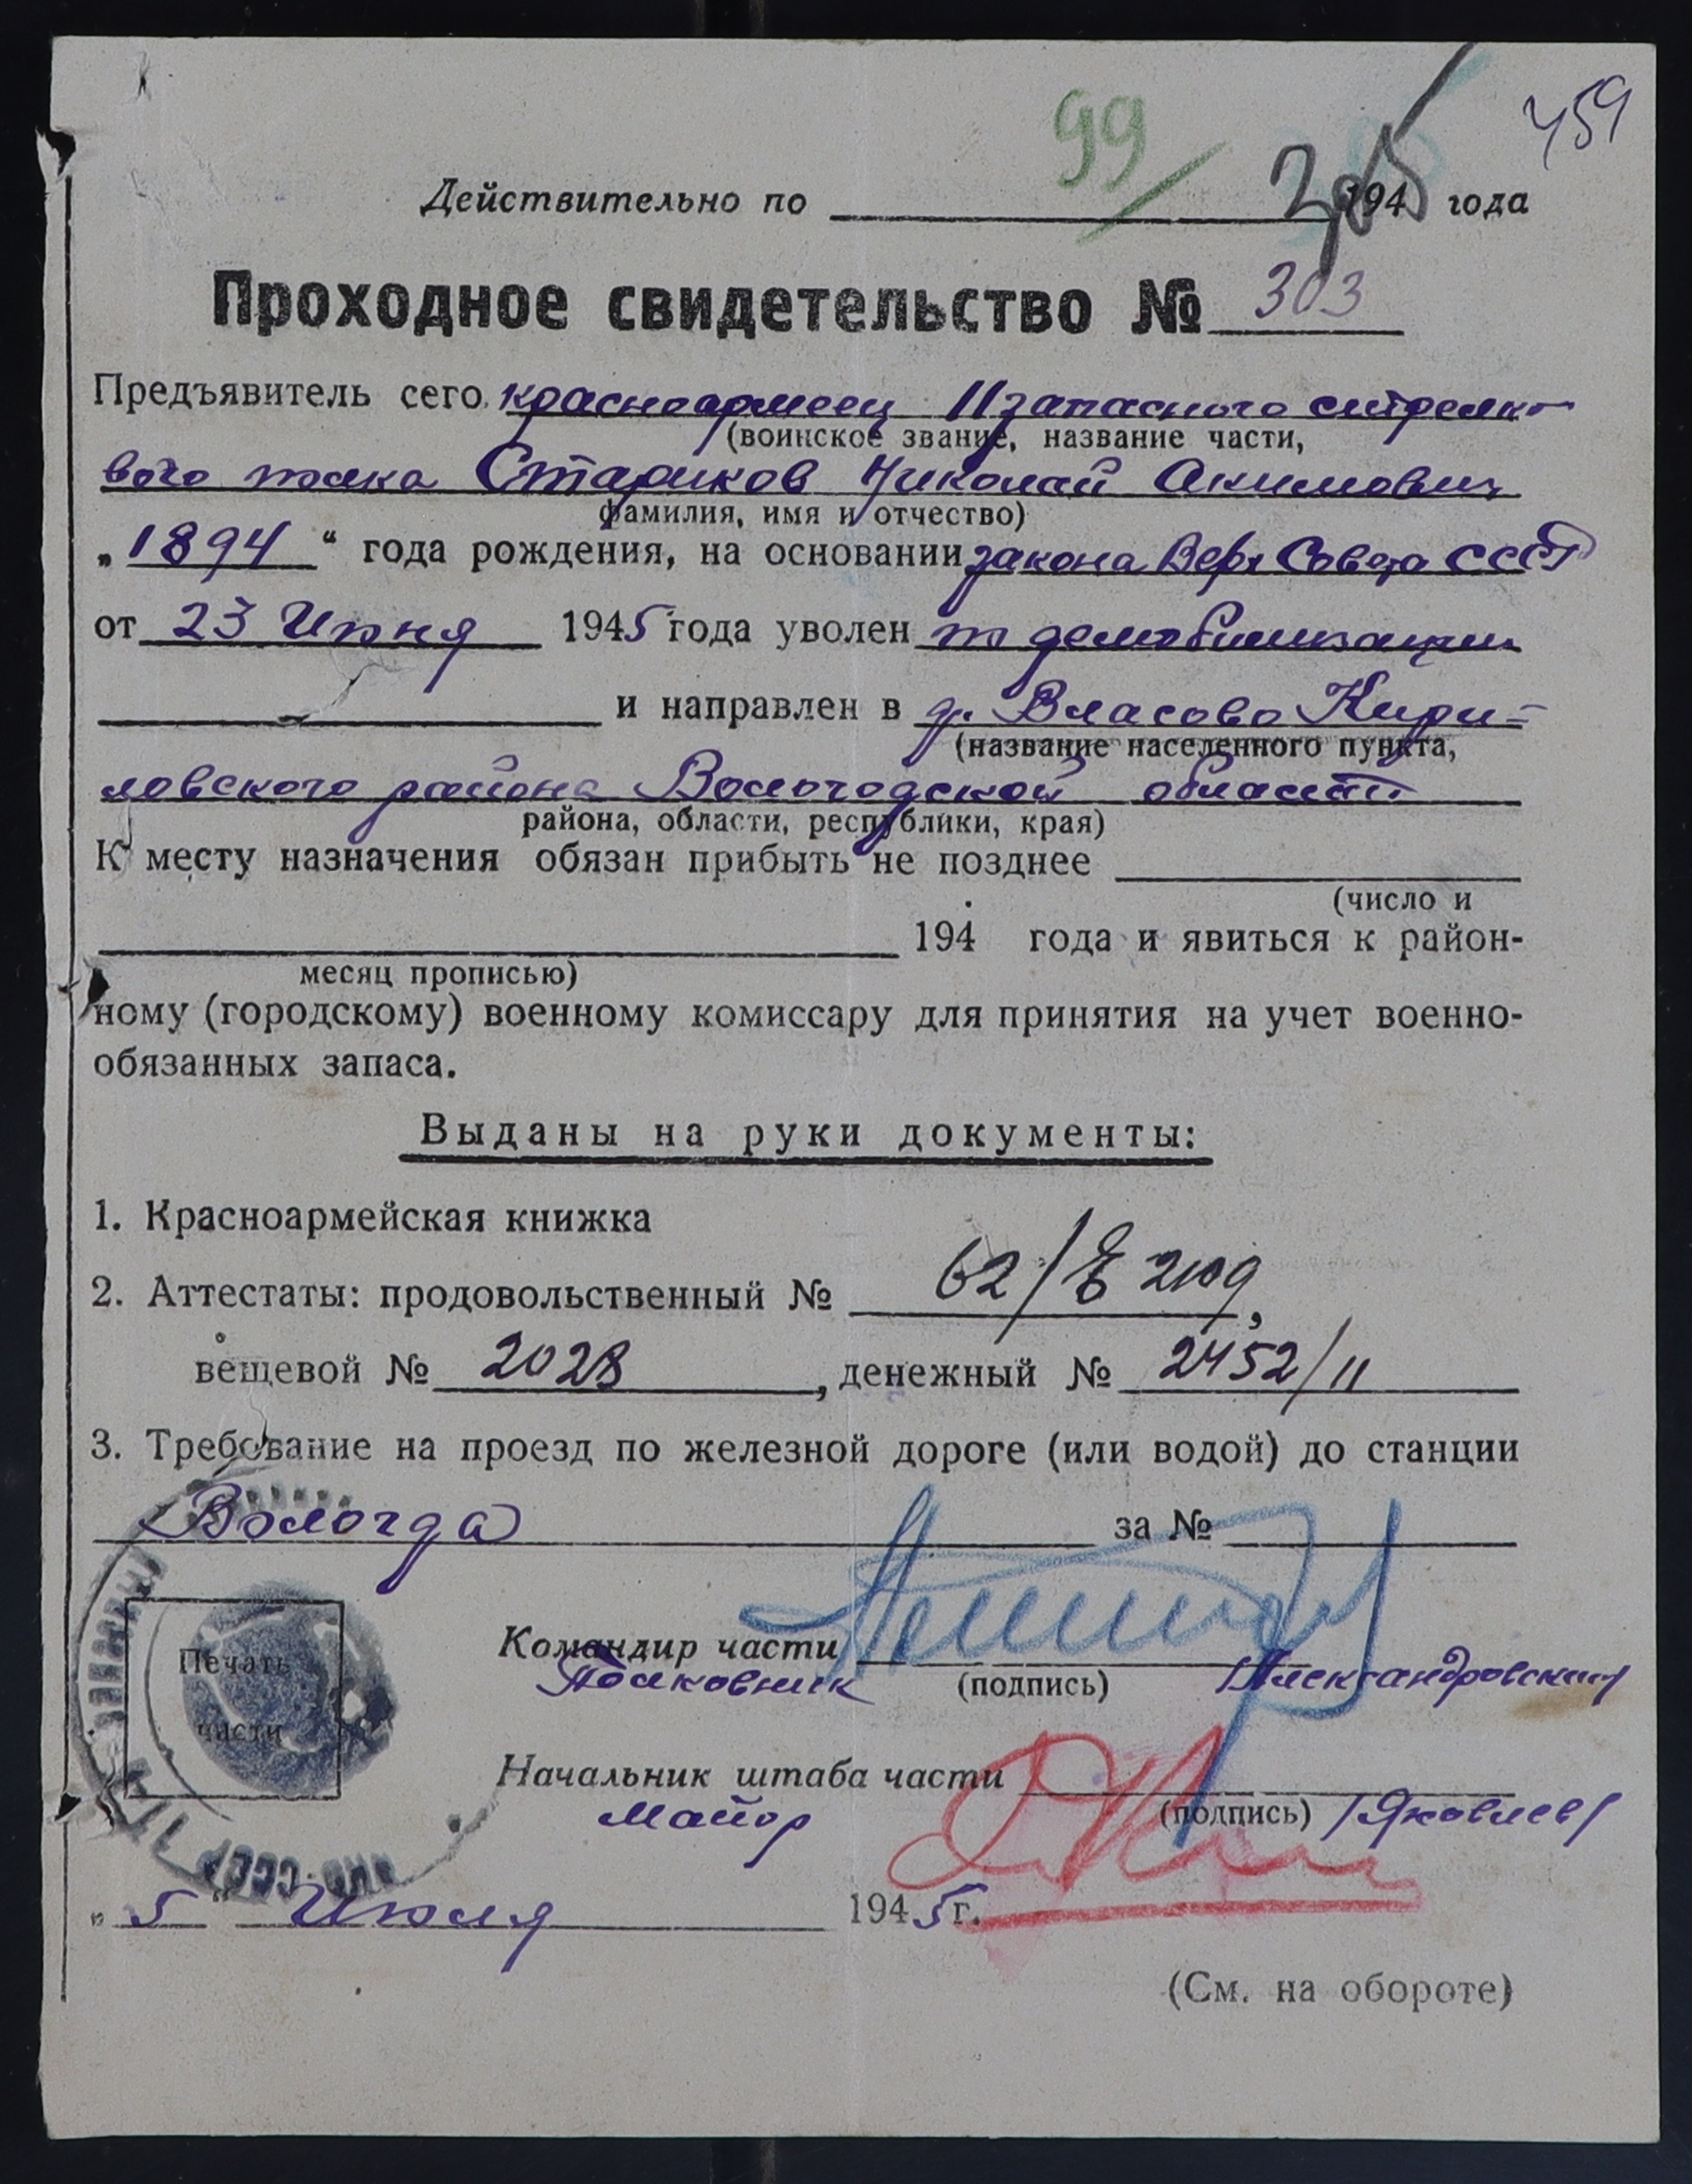 99/
459
Действительно по 194 года
Проходное свидетельство № 303
Предъявитель сего красноармеец 11 запасного стрелко-
(воинское звание, название части,
вого полка Стариков Николай Акимович
фамилия, имя и отчество)
„1894“ года рождения, на основании закона Верх Совета СССР
от 23 Июня 1945 года уволен по демобилизации
и направлен в д. Власово Кири-
(название населенного пункта,
ловского района Вологодской области
района, области, республики, края)
К месту назначения обязан прибыть не позднее
(число и
194 года и явиться к район-
месяц прописью)
ному (городскому) военному комиссару для принятия на учет военно-
обязанных запаса.
Выданы на руки документы:
1. Красноармейская книжка
2. Аттестаты: продовольственный № 62/,
вещевой № 2028, денежный № 2452/11
3. Требование на проезд по железной дороге (или водой) до станции
Вологда за №
Печать
части
Командир части
Полковник (подпись) /Александровский/
Начальник штаба части
Майор (подпись) /Яковлев/
„5“ Июля 1945 г.
(См. на обороте)